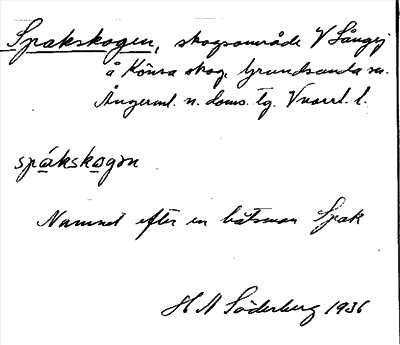 Spakskogen, skogsområde V Långsj
å Könsa skog, Grundsunda sn.
Ångerml. n. doms. tg. Vnorrl. l.
spákskogən
Namnet efter en båtsman Spak
H N Söderberg 1936